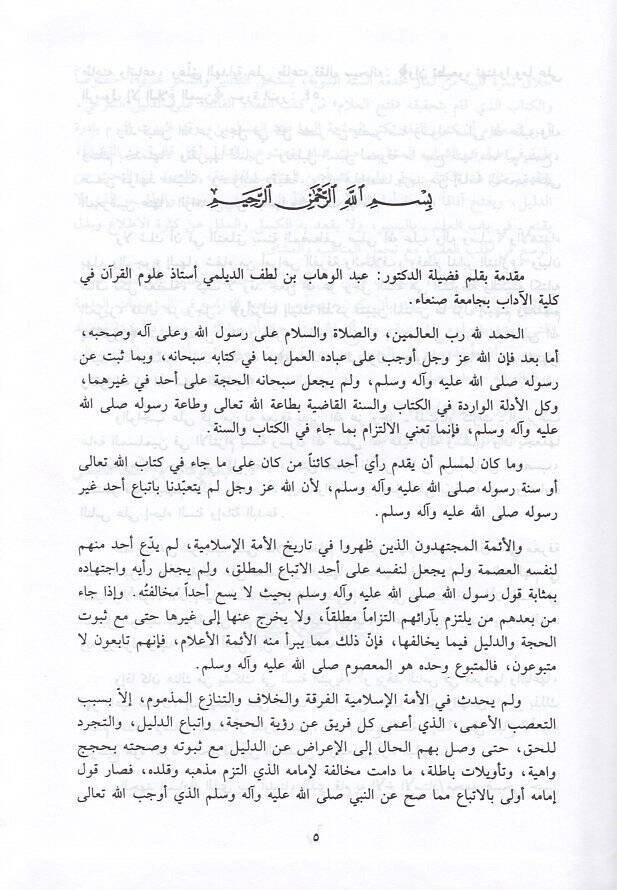 بسم الله الرحمن الرحيم
مقدمة بقلم فضيلة الدكتور: عبد الوهاب بن لطف الديلمي أستاذ علوم القرآن في
كلية الآداب بجامعة صنعاء.
الحمد لله رب العالمين، والصلاة والسلام على رسول الله وعلى آله وصحبه،
أما بعد فإن الله عز وجل أوجب على عباده العمل بما في كتابه سبحانه، وبما ثبت عن
رسوله صلى الله عليه وآله وسلم، ولم يجعل سبحانه الحجة على أحد في غيرهما،
وكل الأدلة الواردة في الكتاب والسنة القاضية بطاعة الله تعالى وطاعة رسوله صلى الله
عليه وآله وسلم، فإنما تعني الالتزام بما جاء في الكتاب والسنة.
وما كان لمسلم أن يقدم رأي أحد كائناً من كان على ما جاء في كتاب الله تعالى
أو سنة رسوله صلى الله عليه وآله وسلم، لأن الله عز وجل لم يتعبّدنا باتباع أحد غير
رسوله صلى الله عليه وآله وسلم.
والأئمة المجتهدون الذين ظهروا في تاريخ الأمة الإسلامية، لم يدّع أحد منهم
لنفسه العصمة ولم يجعل لنفسه على أحد الاتباع المطلق، ولم يجعل رأيه واجتهاده
بمثابة قول رسول الله صلى الله عليه وآله وسلم بحيث لا يسع أحداً مخالفتُه. وإذا جاء
من بعدهم من يلتزم بآرائهم التزاماً مطلقاً، ولا يخرج عنها إلى غيرها حتى مع ثبوت
الحجة والدليل فيما يخالفها، فإنّ ذلك مما يبرأ منه الأئمة الأعلام، فإنهم تابعون لا
متبوعون، فالمتبوع وحده هو المعصوم صلى الله عليه وآله وسلم.
ولم يحدث في الأمة الإسلامية الفرقة والخلاف والتنازع المذموم، إلاّ بسبب
التعصب الأعمى، الذي أعمى كل فريق عن رؤية الحجة، واتباع الدليل، والتجرد
للحق، حتى وصل بهم الحال إلى الإعراض عن الدليل مع ثبوته وصحته بحجج
واهية، وتأويلات باطلة، ما دامت مخالفة لإمامه الذي التزم مذهبه وقلده، فصار قول
إمامه أولى بالاتباع مما صح عن النبي صلى الله عليه وآله وسلم الذي أوجب الله تعالى
٥